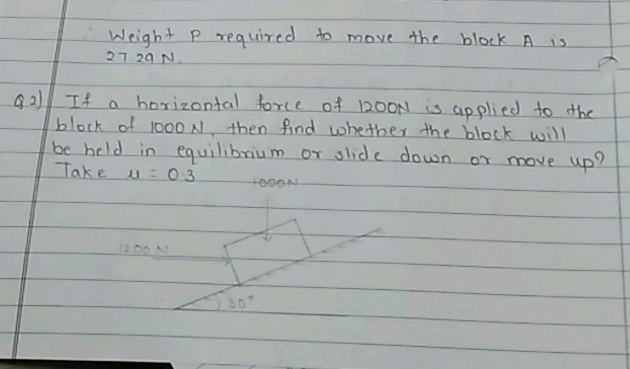 ∴ Weight P required to move the block A is
2729 N.
Q2) If a horizontal force of 1200N is applied to the
block of 1000 N, then find whether the block will
be held in equilibrium or slide down or move up?
Take μ = 0.3
1000N
1200 N
30°